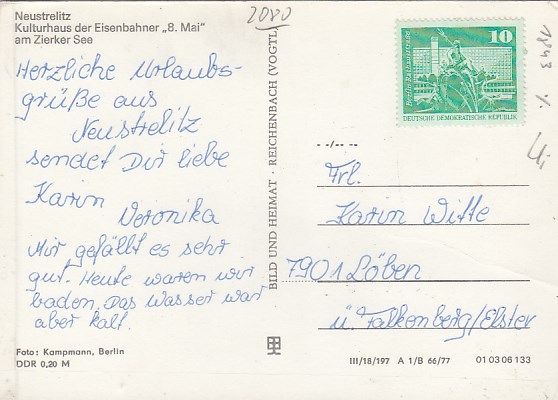 Neustrelitz
Kulturhaus der Eisenbahner „8. Mai"
am Zierker See
2080
Herzliche Urlaubs-
grüße aus
Neustrelitz
sendet Dir liebe
Karin
Veronika
Mir gefällt es sehr
gut. Heute waren wir
baden. Das Wasser war
aber kalt.
Foto: Kampmann, Berlin
DDR 0,20 M
BILD UND HEIMAT · REICHENBACH (VOGTL)
10
Berlin, Rathausstraße
DEUTSCHE DEMOKRATISCHE REPUBLIK
1843
Frl.
Karin Witte
7901 Löben
ü. Falkenberg/Elster
III/18/197 A 1/B 66/77 01 03 06 133